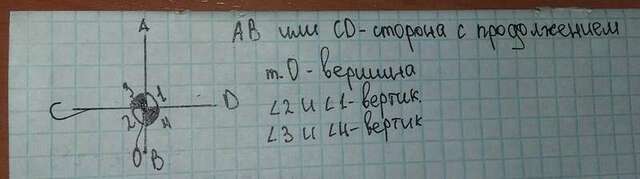 A
АВ или CD-сторона с продолжением
т.О-вершина
∠2 и ∠1-вертик.
∠3 и ∠4-вертик
3 1
C D
2 4
O B